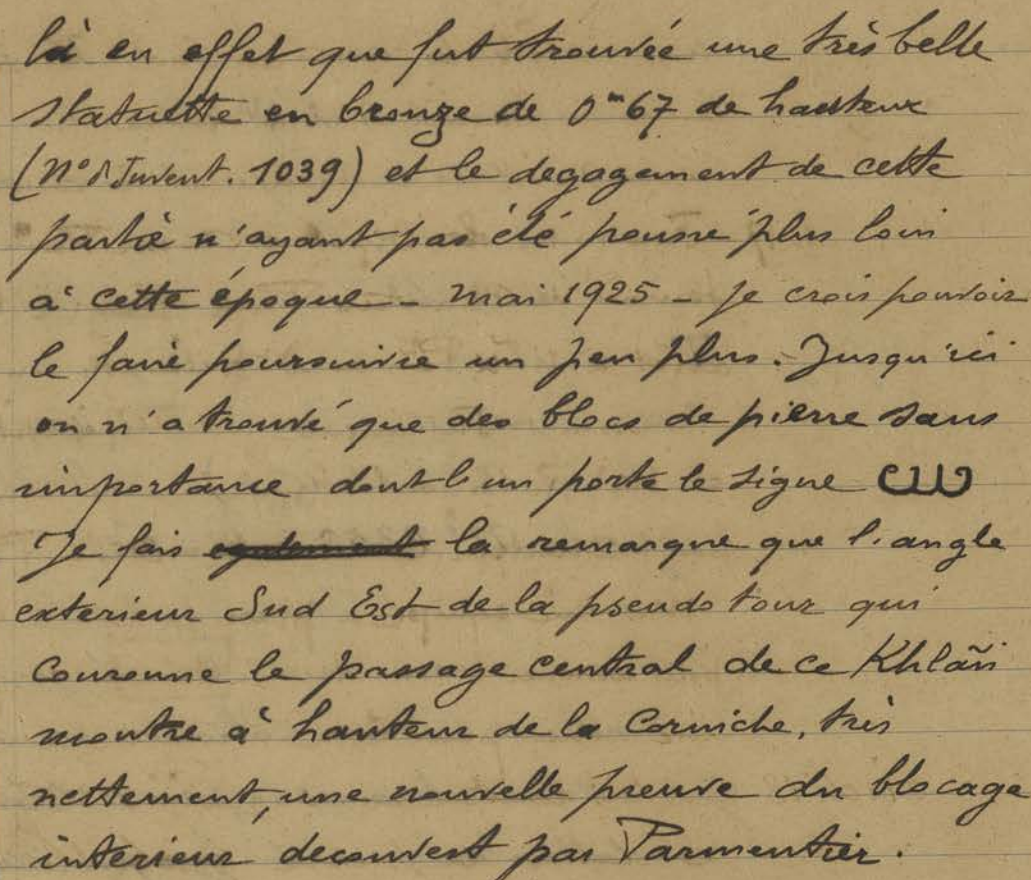 là en effet que fut trouvée une très belle
statuette en bronze de 0ᵐ67 de hauteur
(N° d'Invent. 1039) et le degagement de cette
partie n'ayant pas été poussé plus loin
à cette époque – mai 1925 – je crois pouvoir
le faire poursuivre un peu plus. Jusqu'ici
on n'a trouvé que des blocs de pierre sans
importance dont l'un porte le signe
Je fais également la remarque que l'angle
exterieur Sud Est de la pseudo tour qui
couronne le passage central de ce Khlãn
montre à hauteur de la corniche, très
nettement, une nouvelle preuve du blocage
interieur decouvert par Parmentier.